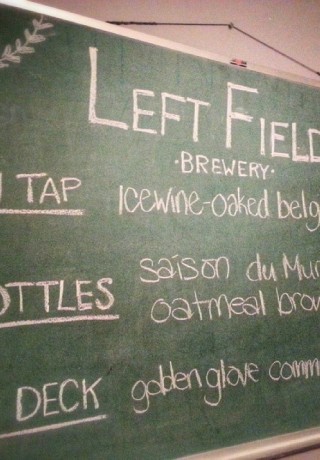 LEFT FIELD
·BREWERY·
TAP Icewine-oaked belg
OTTLES saison du Mun
oatmeal brow
DECK golden glove comm